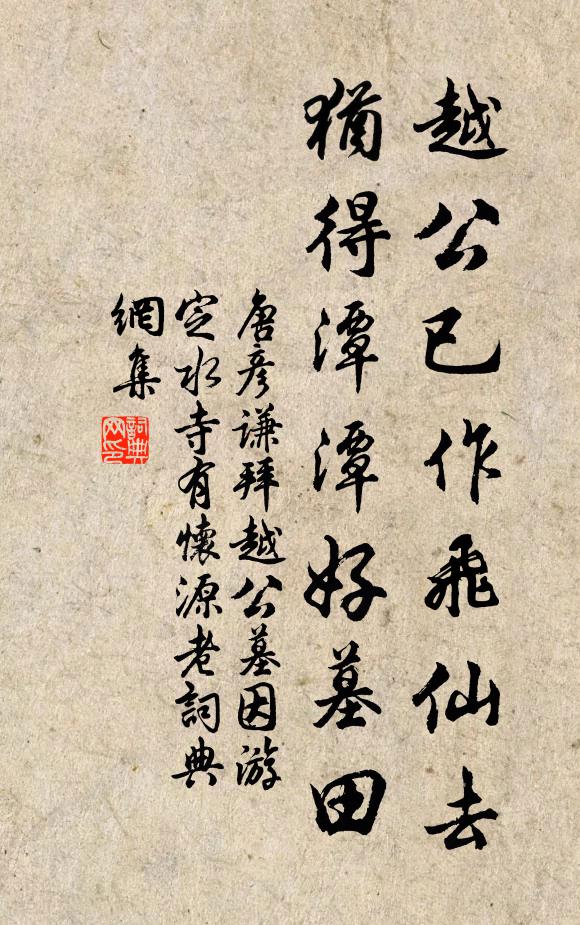 越公已作飛仙去
猶得潭潭好墓田
唐彥謙拜越公墓因游
定水寺有懷源老詞典
網集
詞典
网印